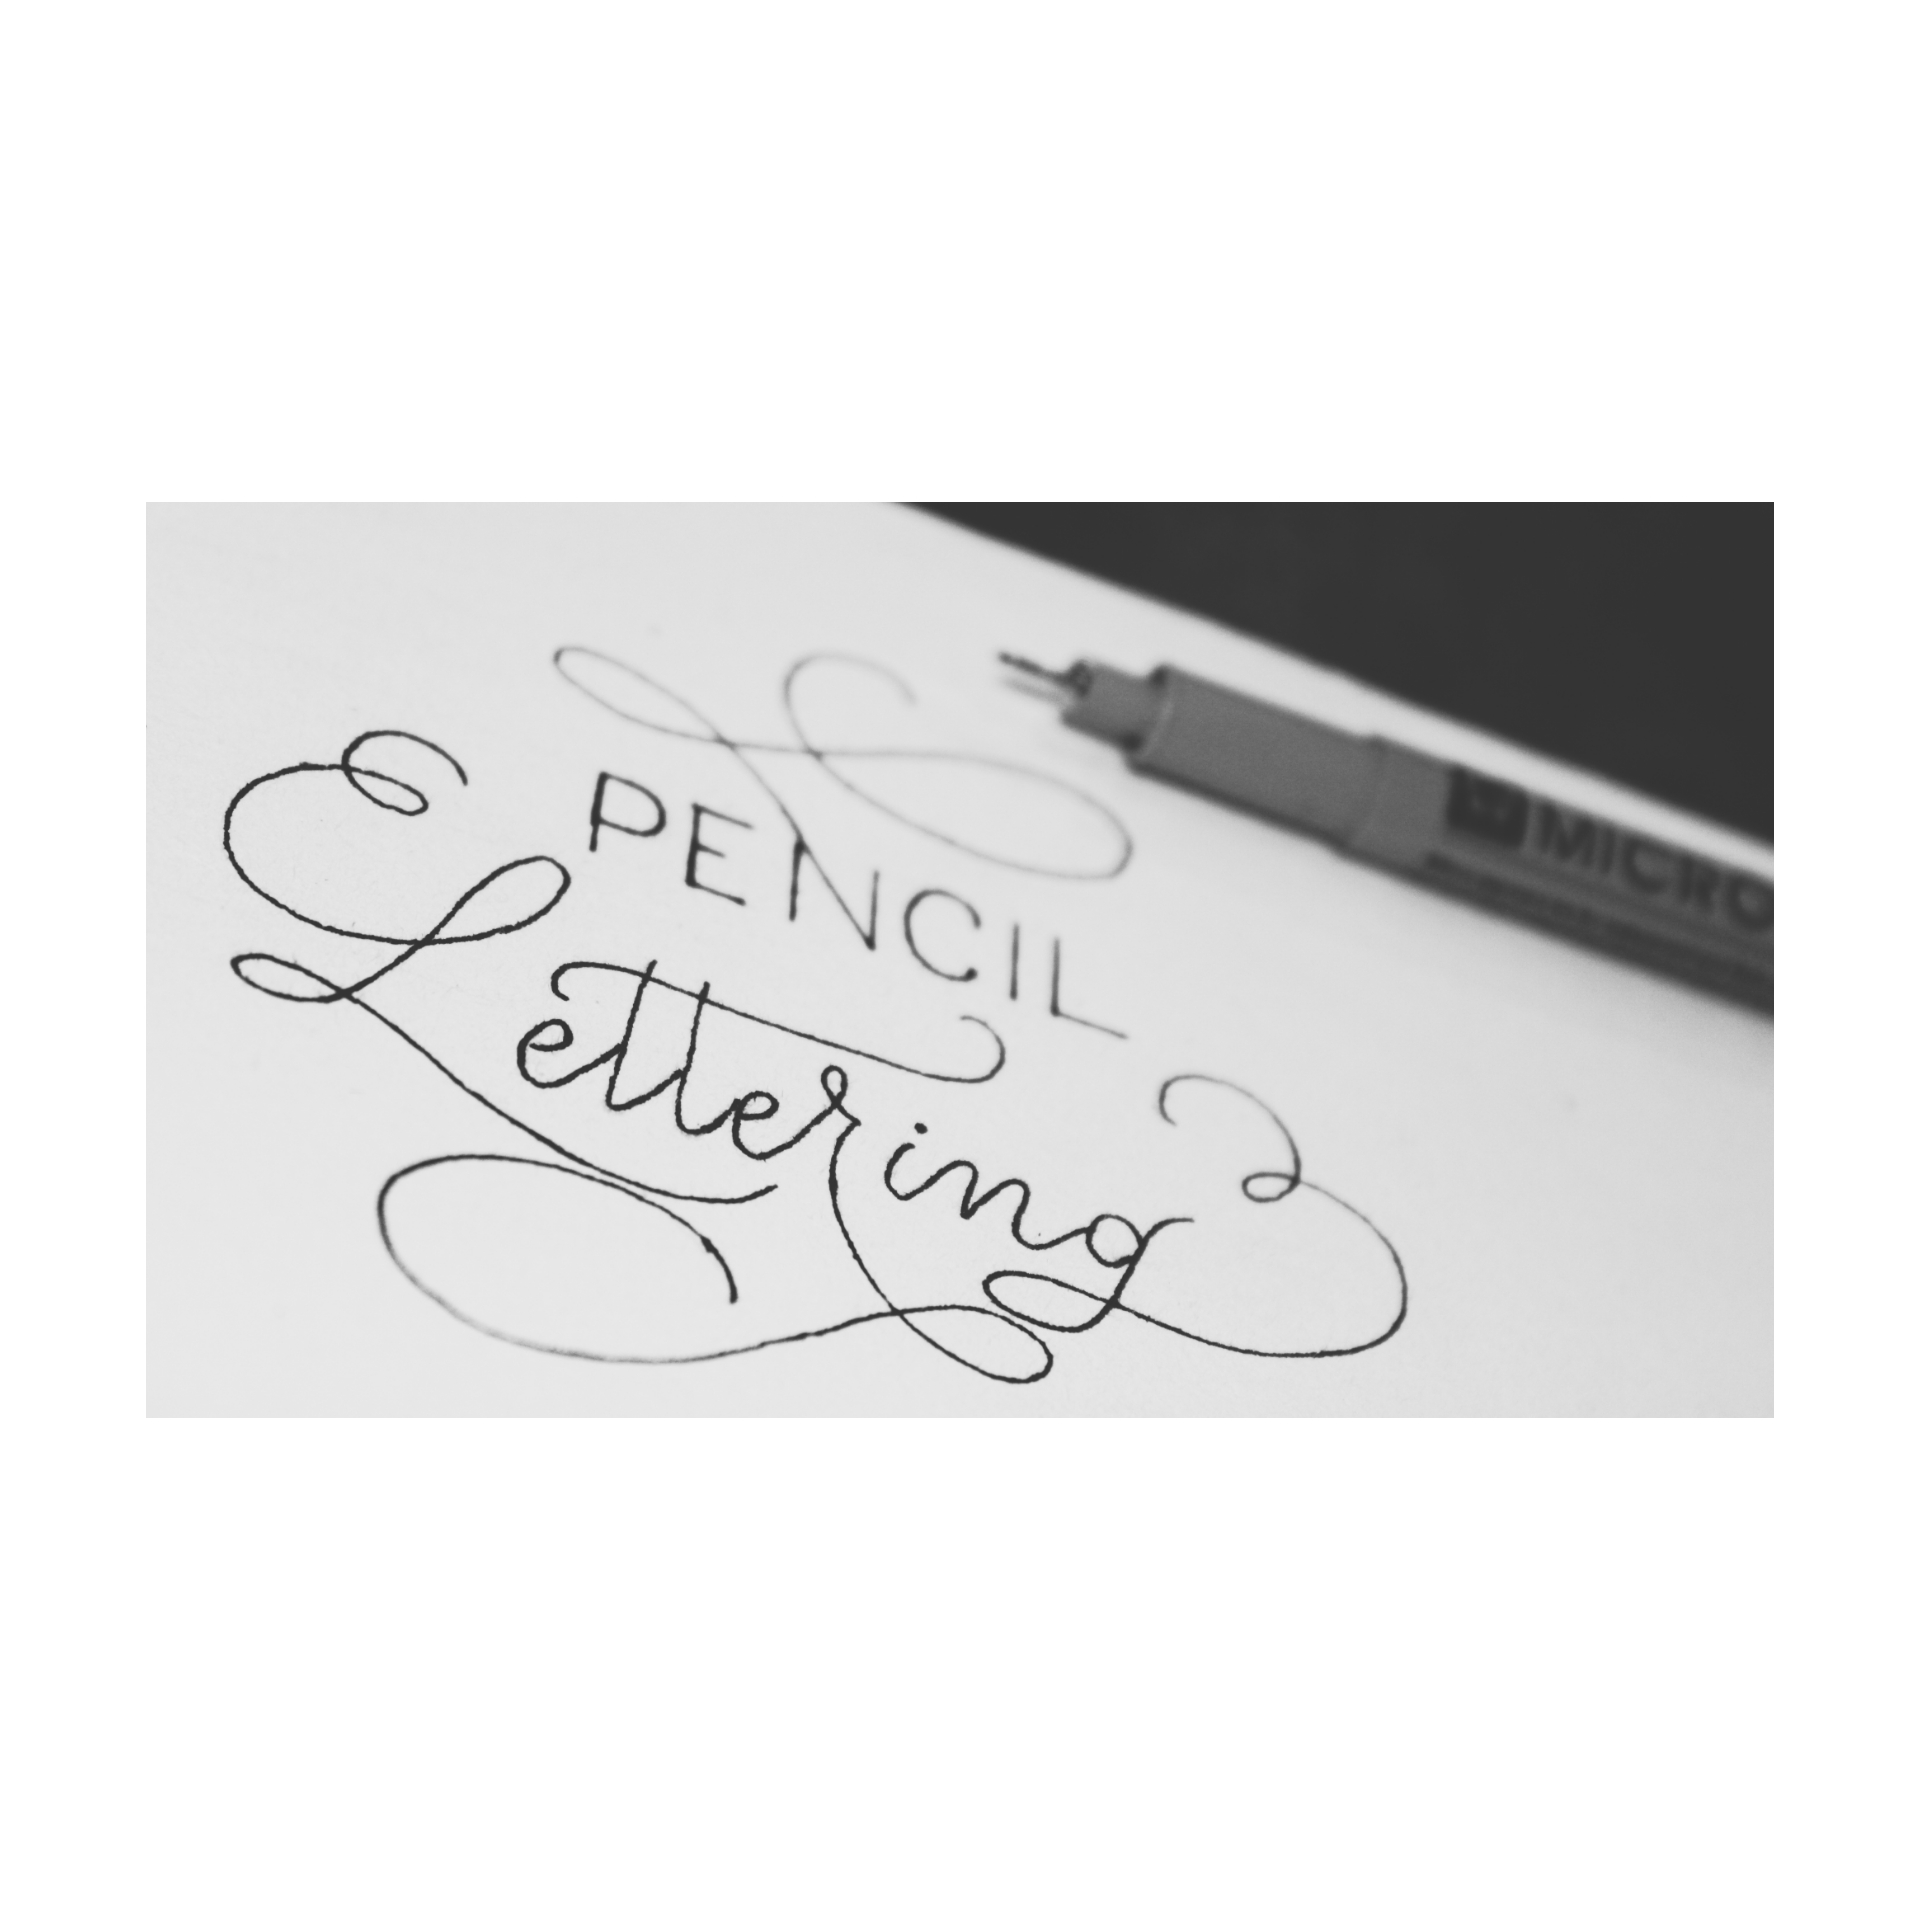 PENCIL
Lettering
MICRO